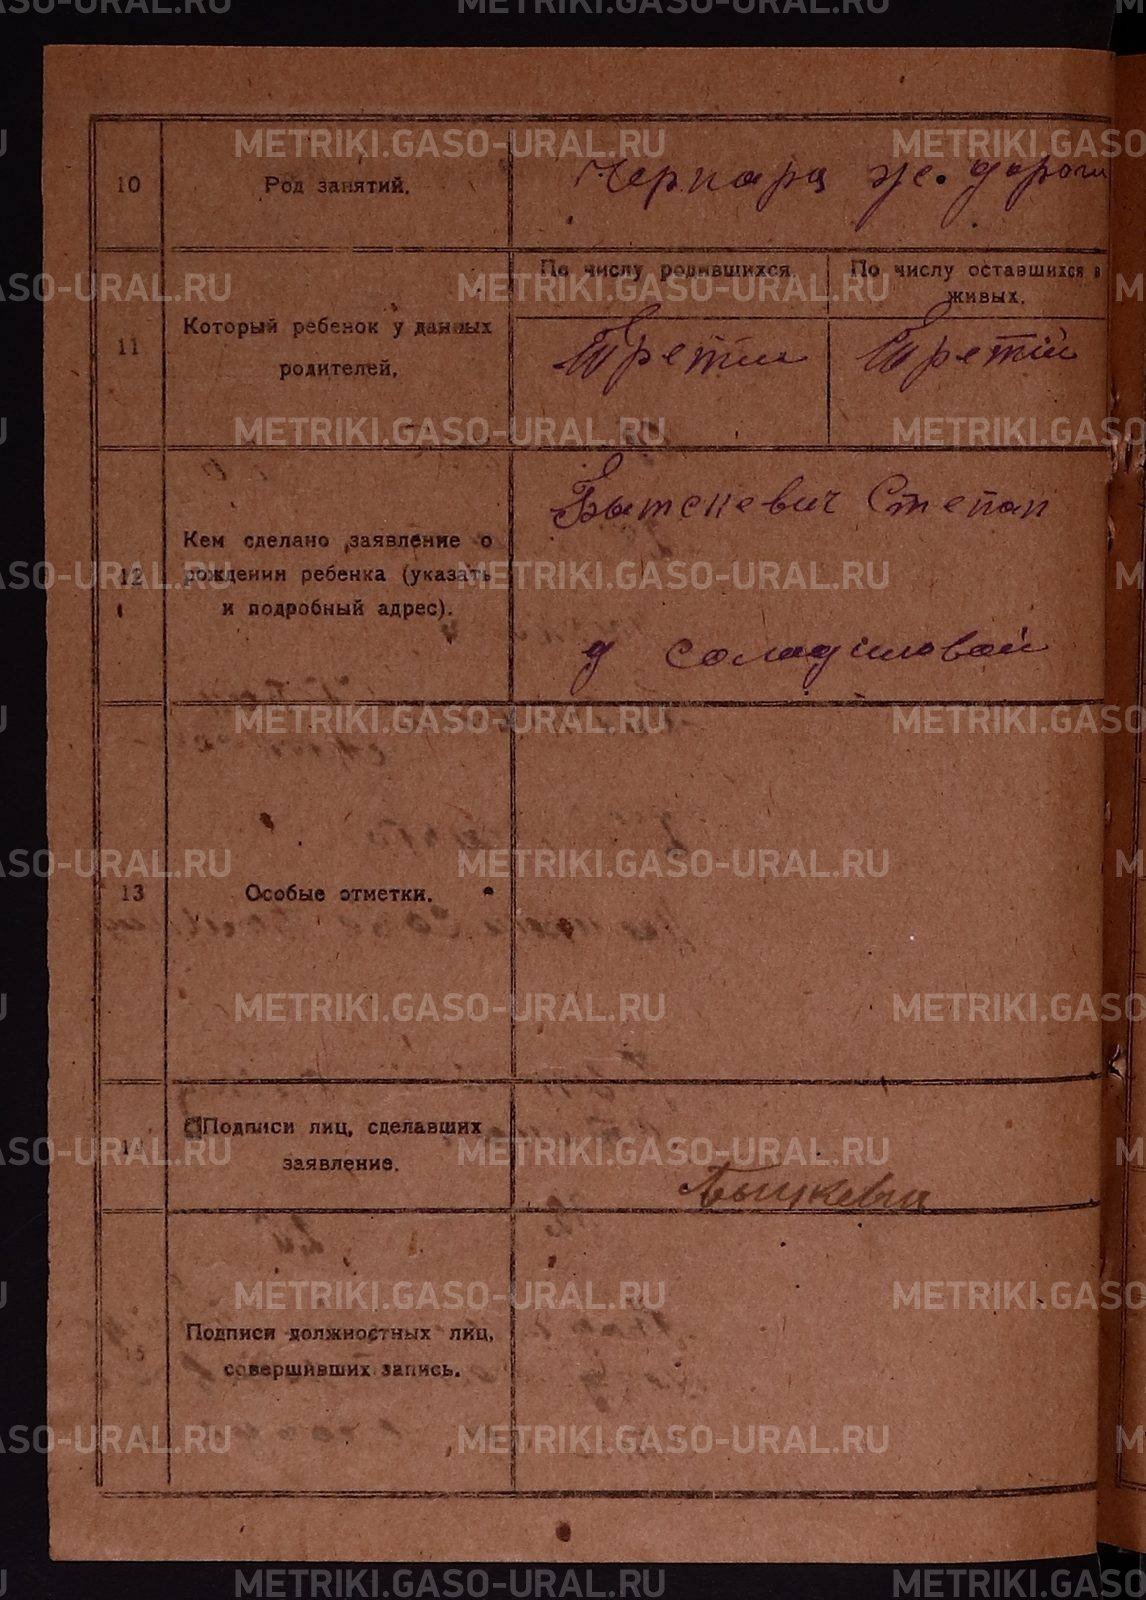 10
Род занятий.
ж. дороги
11
Который ребенок у данных
родителей.
По числу родившихся.
По числу оставшихся в
живых.
Третий
Третий
12
Кем сделано заявление о
рождении ребенка (указать
и подробный адрес).
Степан
д
13
Особые отметки.
14
Подписи лиц, сделавших
заявление.
15
Подписи должностных лиц,
совершивших запись.
METRIKI.GASO-URAL.RU